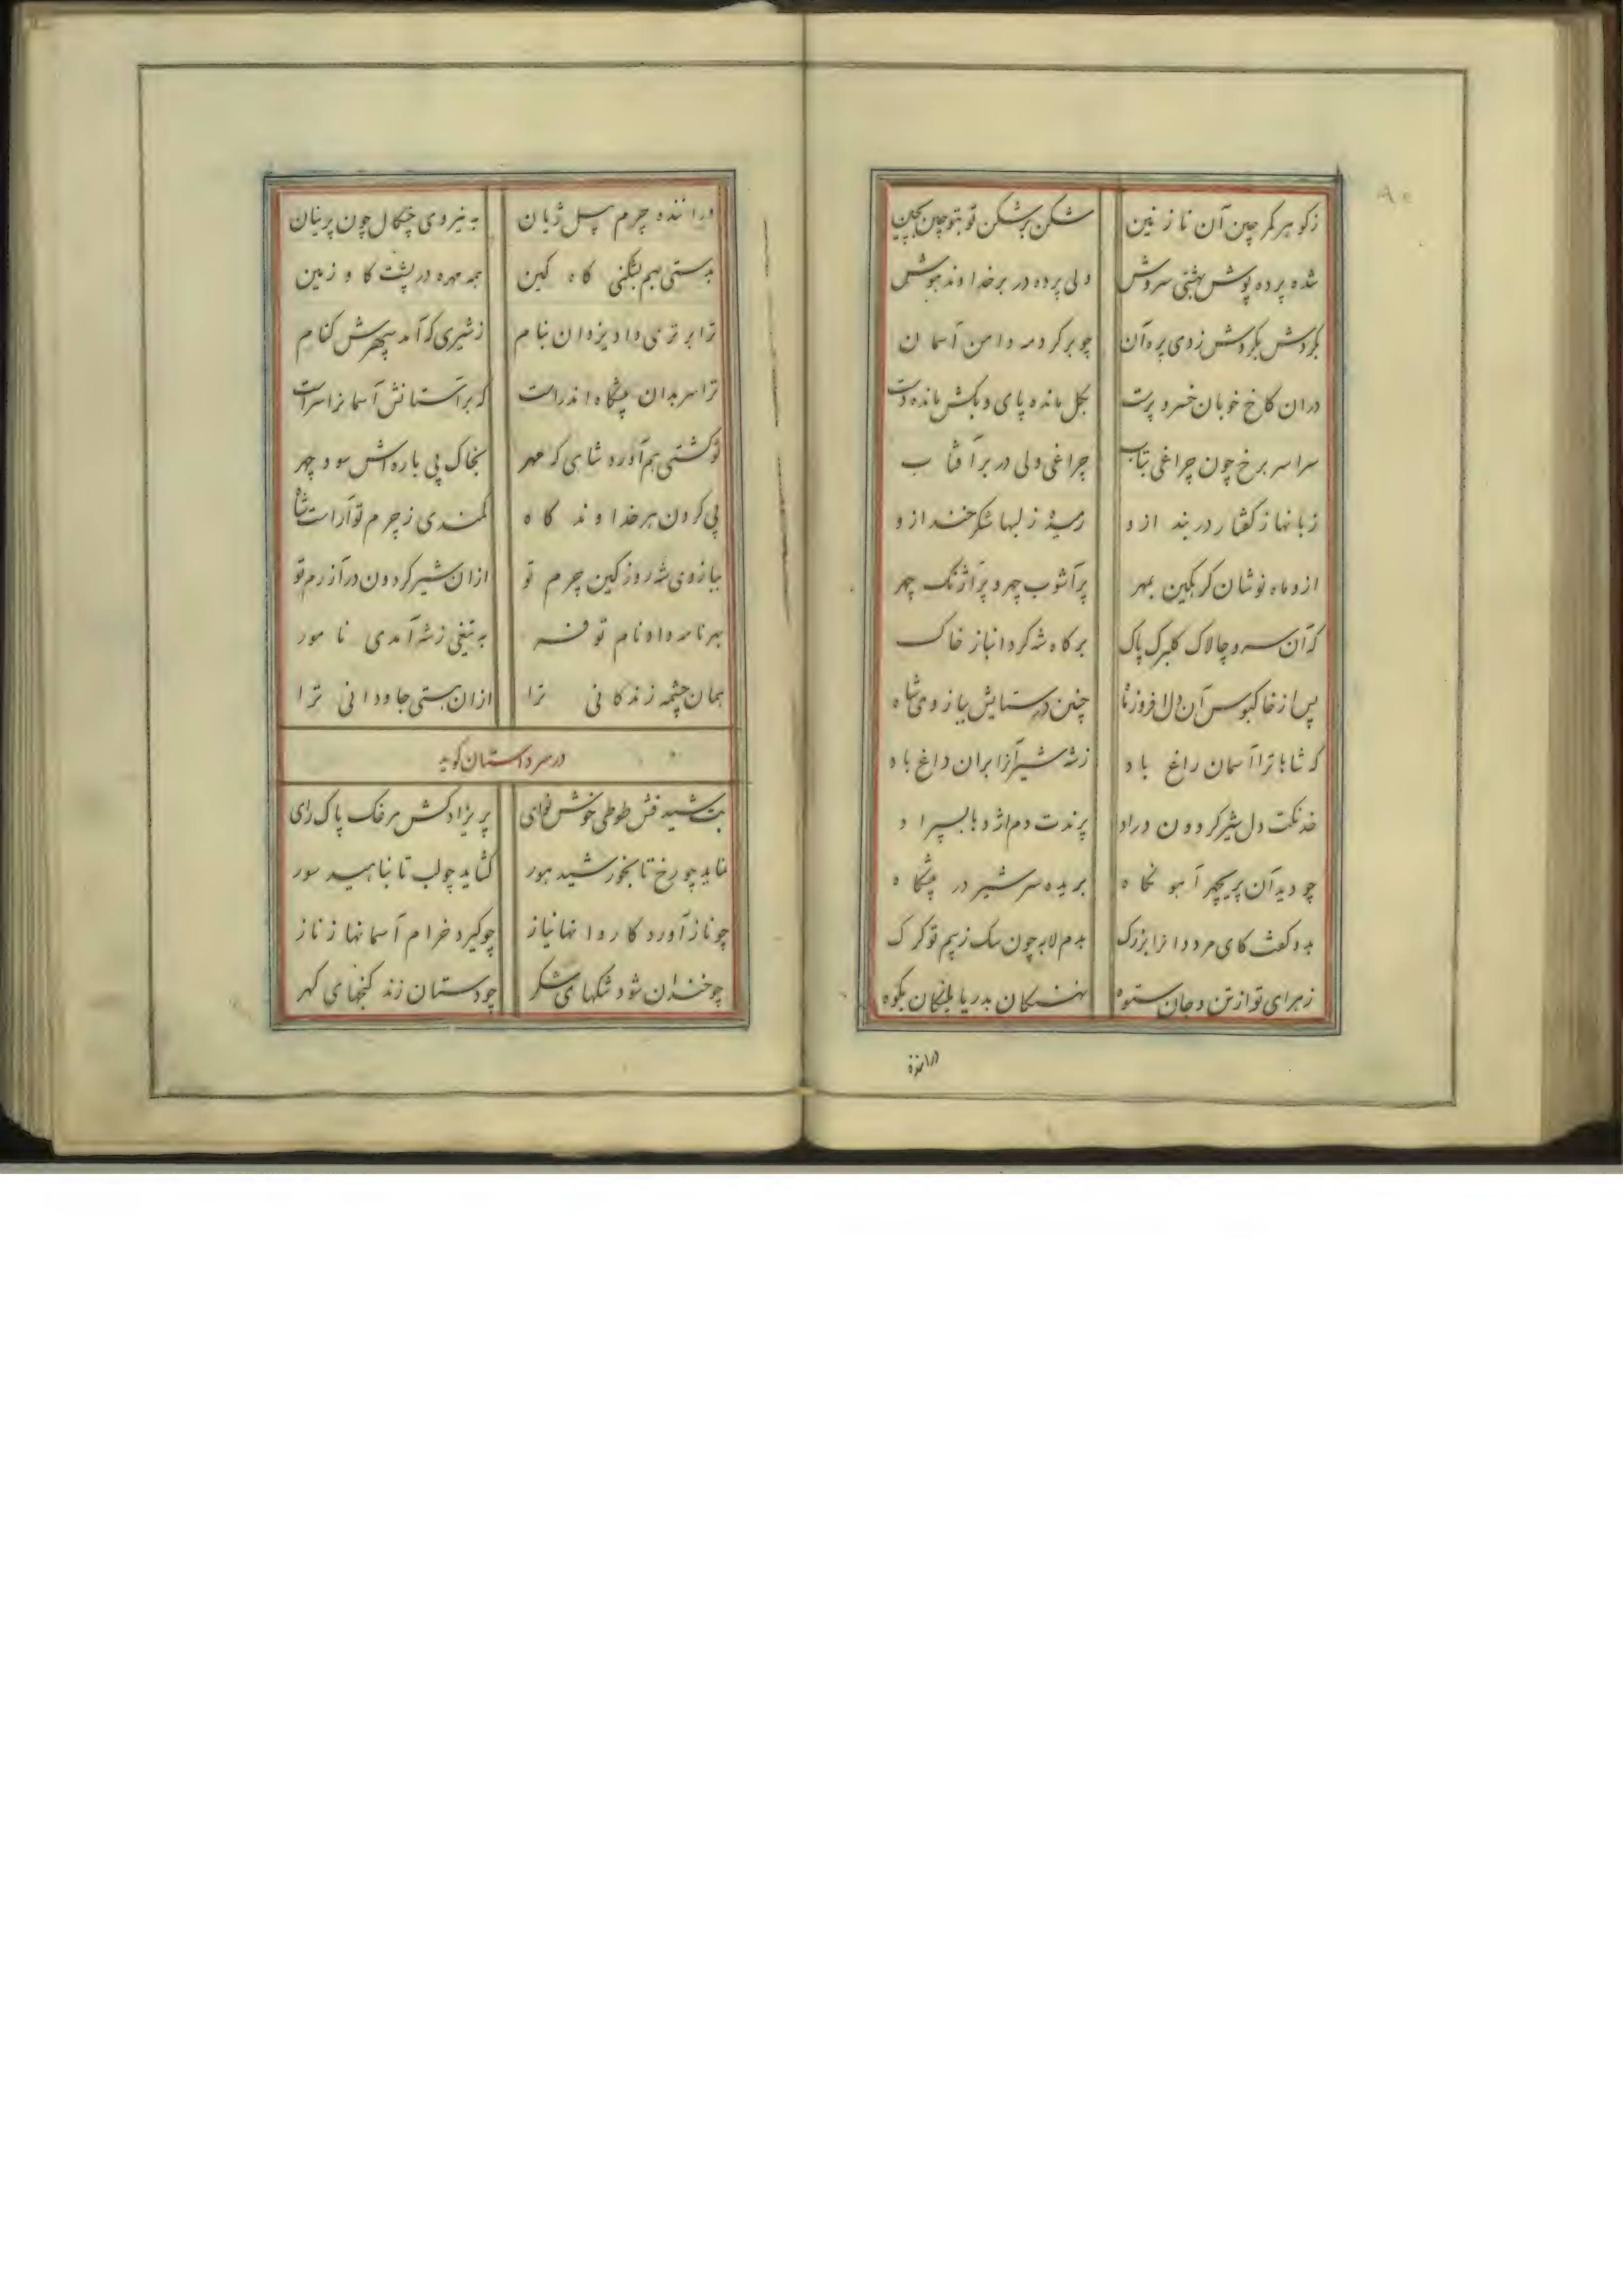 ز کوهر کمر چین آن نازنین شکن بر شکن تو بتو چین بچین
شده پرده پوش بهشتی سروش ولی پرده در بر خداوند هوش
بکردش بکردش ز وی پره آن چو بر کرد مه دامن آسمان
در ان کاخ خوبان خسرو پرست بکل مانده پای و بکش مانده دست
سراسر برخ چون چراغی بتاب چراغی ولی در بر آفتاب
زبانها ز کفتار در بند ازو رمیده ز لبها شکرخند ازو
ازو ماه نوشان کرکین بمهر پر آشوب چهر و پر آژنک چهر
که آن سرو چالاک کلبرک پاک بر کاه شه کرد انباز خاک
پس از خاکبوس آن دل افروز ماه چنین در ستایش ببازوی شاه
که شاها ترا آسمان راغ باد ز شه شیر آنرا بران داغ باد
خدنکت دل شیر کردون دراد پرندت دم اژدها بسپراد
چو دید آن پریچهر آهو نکاه بریده سر شیر در پیشکاه
بدو کفت کای مرد دانزا بزرک بدم لابه چون سک ز بیم تو کرک
زهرای تو از تن و جان ستوه نهنکان بدریا پلنکان بکوه
درانندهٔ
دراننده چرم پیل ژیان به نیروی چنکال چون پرنیان
بدستی بهم بشکنی کاه کین همه مهره در پشت کاو زمین
ترا برتری داد یزدان بنام ز شیری که آمد سپهرش کنام
ترا سر بدان پیشکاه اندر است که بر آستانش آسمانرا سر است
تو کشتی بهم آورد شاهی که مهر بخاک پی باره اش سود چهر
پی کردن هر خداوند کاه کمندی ز چرم تو آراست شاه
ببازوی شه روز کین چرم تو ازان شیر کردون در آزرم تو
بهر نامه داد نام تو فر به تیغی ز شه آمدی نامور
همان چشمه زندکانی ترا ازان هستی جاودانی ترا
در سر داستان کوید
بت شید فش طوطی خوش نوای پریزاد کش مرغک پاک رای
نماید چو رخ تا بخورشید هور کشاید چو لب تا بناهید سور
چو ناز آورد کاروانها نیاز چو کیرد خرام آسمانها ز ناز
چو خندان شود تنکهای شکر چو دستان زند کنجهای کهر